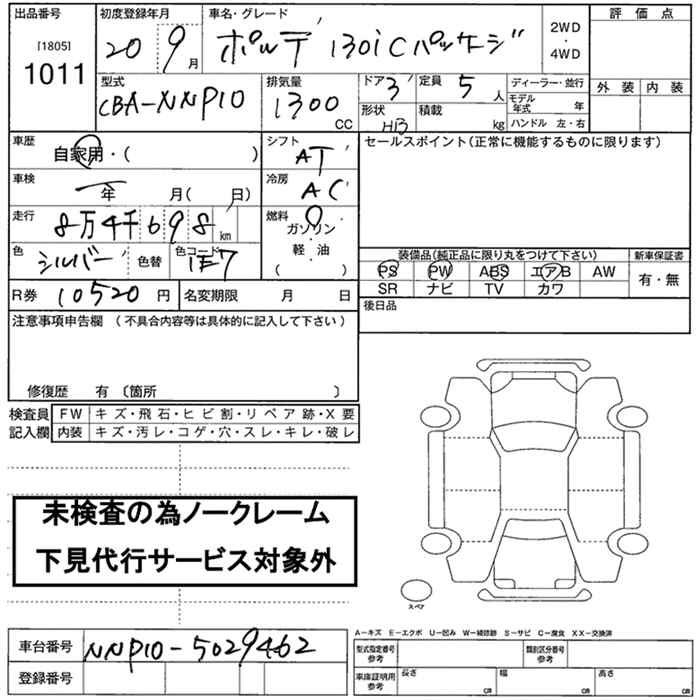 出品番号 初度登録年月 車名・グレード 評価点
[1805] 20 9月 ポルテ 130i Cパッケージ 2WD・4WD
1011
型式 排気量 ドア 3 定員 5人 ディーラー・並行 外装 内装
CBA-NNP10 1300CC 形状 HB 積載 kg モデル年式 年
ハンドル 左・右
車歴 自家用・( ) シフト AT セールスポイント(正常に機能するものに限ります)
車検 年 月( 日) 冷房 AC
走行 8万4千698km 燃料 ガソリン・軽油 ( )
色 シルバー 色替 色コード 1E7 装備品(純正品に限り丸をつけて下さい) 新車保証書
PS PW ABS エアB AW 有・無
SR ナビ TV カワ
R券 10520円 名変期限 月 日 後日品
注意事項申告欄 (不具合内容等は具体的に記入して下さい)
修復歴 有 〔箇所 〕
検査員 FW キズ・飛石・ヒビ割・リペア跡・X要
記入欄 内装 キズ・汚レ・コゲ・穴・スレ・キレ・破レ
未検査の為ノークレーム
下見代行サービス対象外
スペア
A-キズ E-エクボ U-凹み W-補修跡 S-サビ C-腐食 XX-交換済
車台番号 NNP10-5029462 型式指定番号 参考 類別区分番号 参考
登録番号 車庫証明用 参考 長さ cm 幅 cm 高さ cm